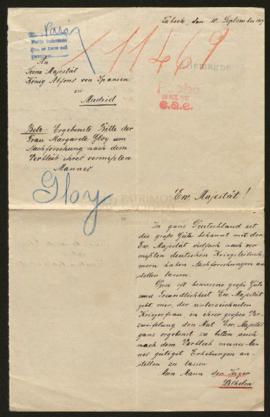 Lübeck, den 10. September 1917
11469
An
Seine Majestät
König Alfons von Spanien
zu
Madrid
Betr. Ergebenste Bitte der
Frau Margarethe Gloy um
Nachforschung nach dem
Verbleib ihres vermißten
Mannes
Gloy
Ew. Majestät!
In ganz Deutschland ist
die große Güte bekannt mit der
Ew. Majestät vielfach nach ver-
mißten deutschen Kriegsteilneh-
mern haben Nachforschungen an-
stellen lassen.
Diese große Güte
und Freundlichkeit Ew. Majestät
gibt mir, der unterzeichneten
Kriegerfrau in ihrer großen Ver-
zweiflung den Mut Ew. Majestät
ganz ergebenst zu bitten auch
nach dem Verbleib meines Man-
nes gütigst Erhebungen an-
stellen zu lassen
Mein Mann der Jäger
Wilhelm